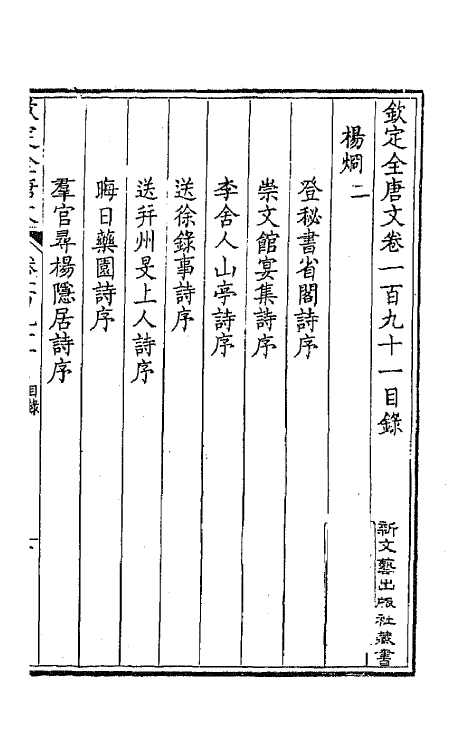 欽定全唐文卷一百九十一目錄
新文藝出版社藏書
楊炯二
登秘書省閣詩序
崇文館宴集詩序
李舍人山亭詩序
送徐錄事詩序
送幷州旻上人詩序
晦日藥園詩序
羣官尋楊隱居詩序